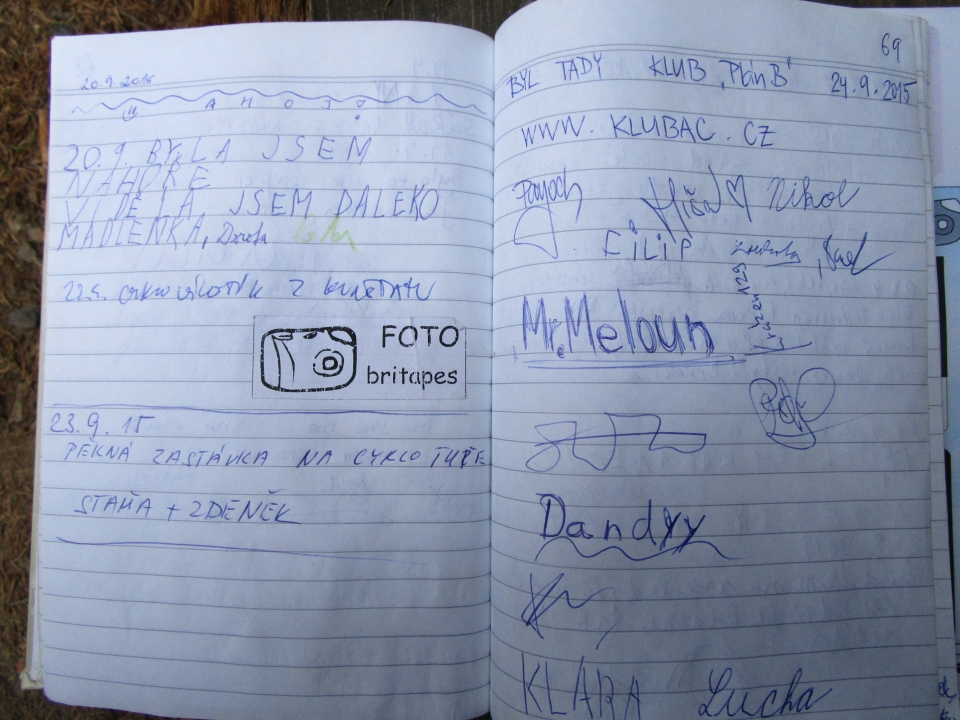 20.9.2015
AHOJ
20.9. BYLA JSEM
NAHOŘE
VIDĚLA JSEM DALEKO
MADLENKA,
22.9. cyklo
FOTO
britapes
23.9.15
PĚKNÁ ZASTÁVKA NA CYKLO TUŘE
STAŇA + ZDENĚK
69
BYL TADY KLUB „Plán B" 24.9.2015
WWW.KLUBAC.CZ
Míša Nikol
FILIP
Mr. Meloun
Dandyy
KLÁRA Lucha